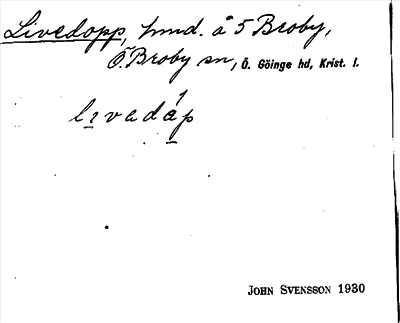 Livedopp, hmd. å 5 Broby,
Ö. Broby sn, Ö. Göinge hd, Krist. l.
livadáp
JOHN SVENSSON 1930